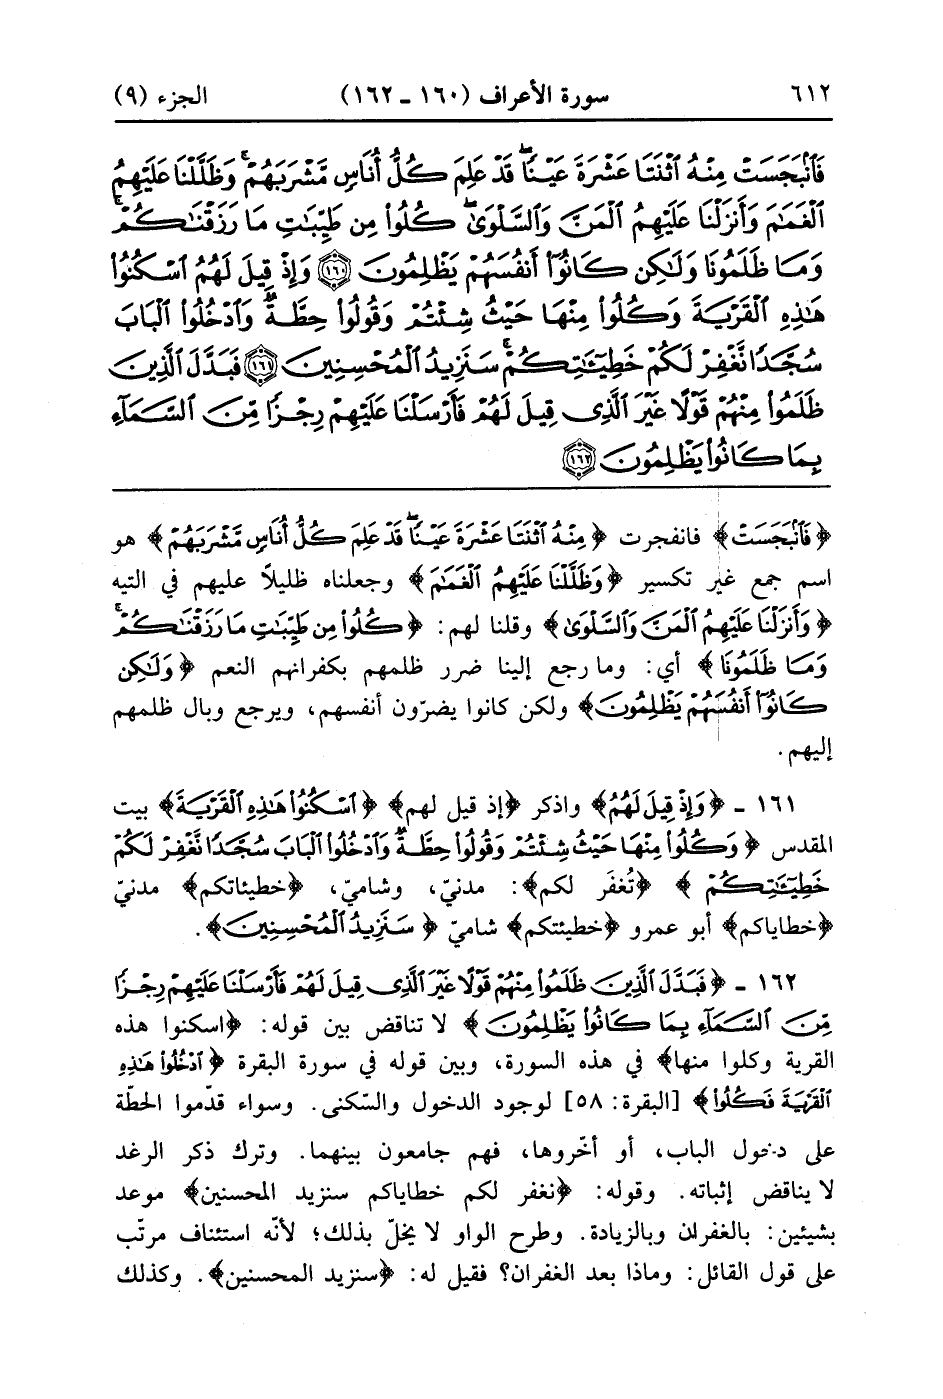 ٦١٢ سورة الأعراف (١٦٠ ـ ١٦٢) الجزء (٩)
فَٱنۢبَجَسَتْ مِنْهُ ٱثْنَتَا عَشْرَةَ عَيْنًا ۖ قَدْ عَلِمَ كُلُّ أُنَاسٍ مَّشْرَبَهُمْ ۚ وَظَلَّلْنَا عَلَيْهِمُ
ٱلْغَمَٰمَ وَأَنزَلْنَا عَلَيْهِمُ ٱلْمَنَّ وَٱلسَّلْوَىٰ ۖ كُلُوا۟ مِن طَيِّبَٰتِ مَا رَزَقْنَٰكُمْ ۚ
وَمَا ظَلَمُونَا وَلَٰكِن كَانُوٓا۟ أَنفُسَهُمْ يَظْلِمُونَ ﴿١٦٠﴾ وَإِذْ قِيلَ لَهُمُ ٱسْكُنُوا۟
هَٰذِهِ ٱلْقَرْيَةَ وَكُلُوا۟ مِنْهَا حَيْثُ شِئْتُمْ وَقُولُوا۟ حِطَّةٌ وَٱدْخُلُوا۟ ٱلْبَابَ
سُجَّدًا نَّغْفِرْ لَكُمْ خَطِيٓـَٰٔتِكُمْ ۚ سَنَزِيدُ ٱلْمُحْسِنِينَ ﴿١٦١﴾ فَبَدَّلَ ٱلَّذِينَ
ظَلَمُوا۟ مِنْهُمْ قَوْلًا غَيْرَ ٱلَّذِى قِيلَ لَهُمْ فَأَرْسَلْنَا عَلَيْهِمْ رِجْزًا مِّنَ ٱلسَّمَآءِ
بِمَا كَانُوا۟ يَظْلِمُونَ ﴿١٦٢﴾
﴿فَٱنۢبَجَسَتْ﴾ فانفجرت ﴿مِنْهُ ٱثْنَتَا عَشْرَةَ عَيْنًا ۖ قَدْ عَلِمَ كُلُّ أُنَاسٍ مَّشْرَبَهُمْ﴾ هو
اسم جمع غير تكسير ﴿وَظَلَّلْنَا عَلَيْهِمُ ٱلْغَمَٰمَ﴾ وجعلناه ظليلاً عليهم في التيه
﴿وَأَنزَلْنَا عَلَيْهِمُ ٱلْمَنَّ وَٱلسَّلْوَىٰ﴾ وقلنا لهم: ﴿كُلُوا۟ مِن طَيِّبَٰتِ مَا رَزَقْنَٰكُمْ ۚ
وَمَا ظَلَمُونَا﴾ أي: وما رجع إلينا ضرر ظلمهم بكفرانهم النعم ﴿وَلَٰكِن
كَانُوٓا۟ أَنفُسَهُمْ يَظْلِمُونَ﴾ ولكن كانوا يضرّون أنفسهم، ويرجع وبال ظلمهم
إليهم.
١٦١ ـ ﴿وَإِذْ قِيلَ لَهُمُ﴾ واذكر ﴿إذ قيل لهم﴾ ﴿ٱسْكُنُوا۟ هَٰذِهِ ٱلْقَرْيَةَ﴾ بيت
المقدس ﴿وَكُلُوا۟ مِنْهَا حَيْثُ شِئْتُمْ وَقُولُوا۟ حِطَّةٌ وَٱدْخُلُوا۟ ٱلْبَابَ سُجَّدًا نَّغْفِرْ لَكُمْ
خَطِيٓـَٰٔتِكُمْ﴾ ﴿تُغفَر لكم﴾: مدنيّ، وشاميّ، ﴿خطيئاتكم﴾ مدنيّ
﴿خطاياكم﴾ أبو عمرو ﴿خطيئتكم﴾ شاميّ ﴿سَنَزِيدُ ٱلْمُحْسِنِينَ﴾.
١٦٢ ـ ﴿فَبَدَّلَ ٱلَّذِينَ ظَلَمُوا۟ مِنْهُمْ قَوْلًا غَيْرَ ٱلَّذِى قِيلَ لَهُمْ فَأَرْسَلْنَا عَلَيْهِمْ رِجْزًا
مِّنَ ٱلسَّمَآءِ بِمَا كَانُوا۟ يَظْلِمُونَ﴾ لا تناقض بين قوله: ﴿اسكنوا هذه
القرية وكلوا منها﴾ في هذه السورة، وبين قوله في سورة البقرة ﴿ٱدْخُلُوا۟ هَٰذِهِ
ٱلْقَرْيَةَ فَكُلُوا۟﴾ [البقرة: ٥٨] لوجود الدخول والسّكنى. وسواء قدّموا الحطّة
على دخول الباب، أو أخّروها، فهم جامعون بينهما. وترك ذكر الرغد
لا يناقض إثباته. وقوله: ﴿نغفر لكم خطاياكم سنزيد المحسنين﴾ موعد
بشيئين: بالغفران وبالزيادة. وطرح الواو لا يخلّ بذلك؛ لأنّه استئناف مرتّب
على قول القائل: وماذا بعد الغفران؟ فقيل له: ﴿سنزيد المحسنين﴾. وكذلك